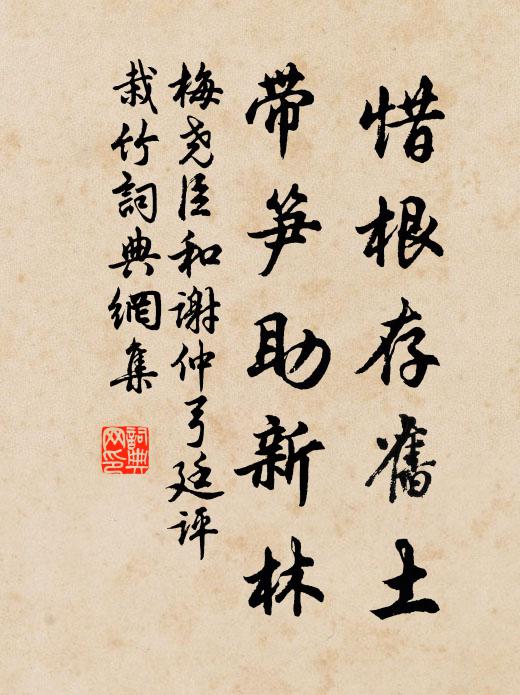 惜根存舊土
带笋助新林
梅尧臣和谢仲弓廷评
栽竹詞典網集
詞典网印